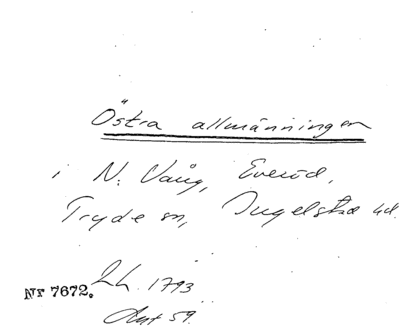 Östra allmänningen
i N. Vång, Everöd,
Tryde sn, Ingelstad hd.
Lh. 1793
Nr 7672.
Akt 59.